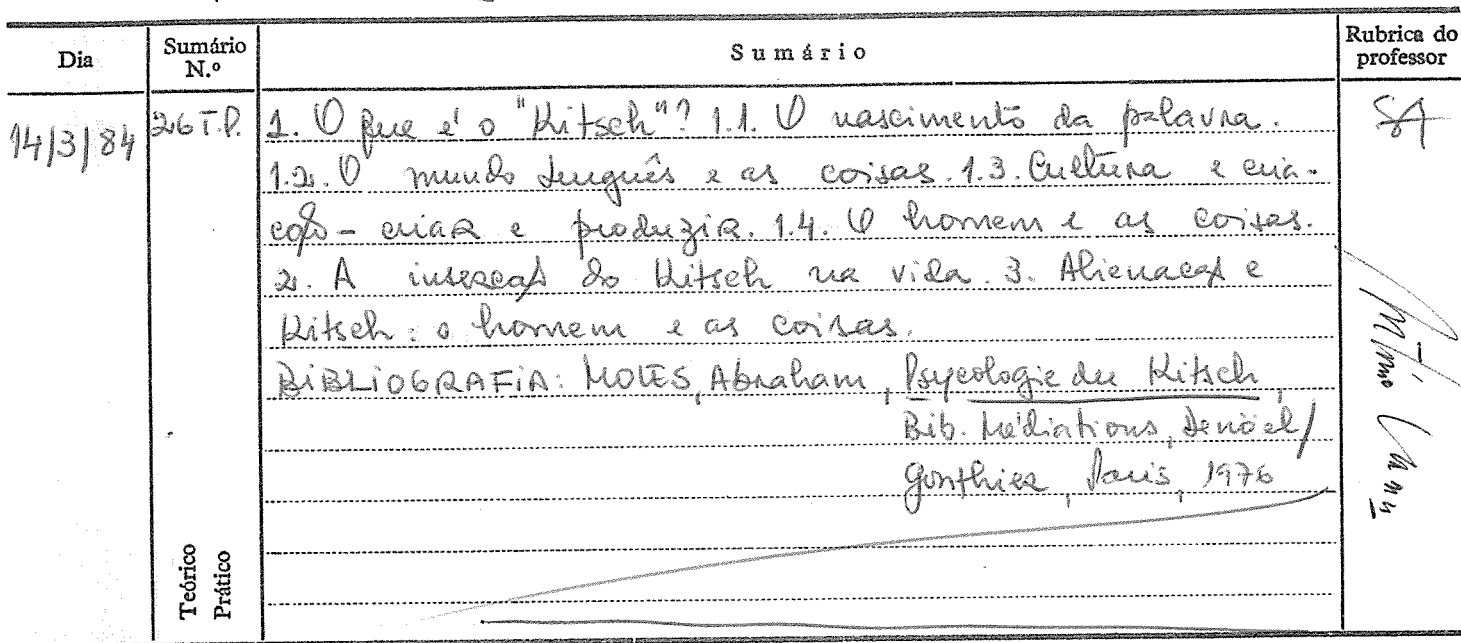 Dia
Sumário N.º
Sumário
Rubrica do professor
14/3/84
26 T.P.
1. O que é o "Kitsch"? 1.1. O nascimento da palavra.
1.2. O mundo burguês e as coisas. 1.3. Cultura e cria-
ção - criar e produzir. 1.4. O homem e as coisas.
2. A inserção do Kitsch na vida. 3. Alienação e
Kitsch: o homem e as coisas.
BIBLIOGRAFIA: MOLES, Abraham, Psycologie du Kitsch,
Bib. Médiations, Denöel/
Gonthier, Paris, 1976
Teórico
Prático